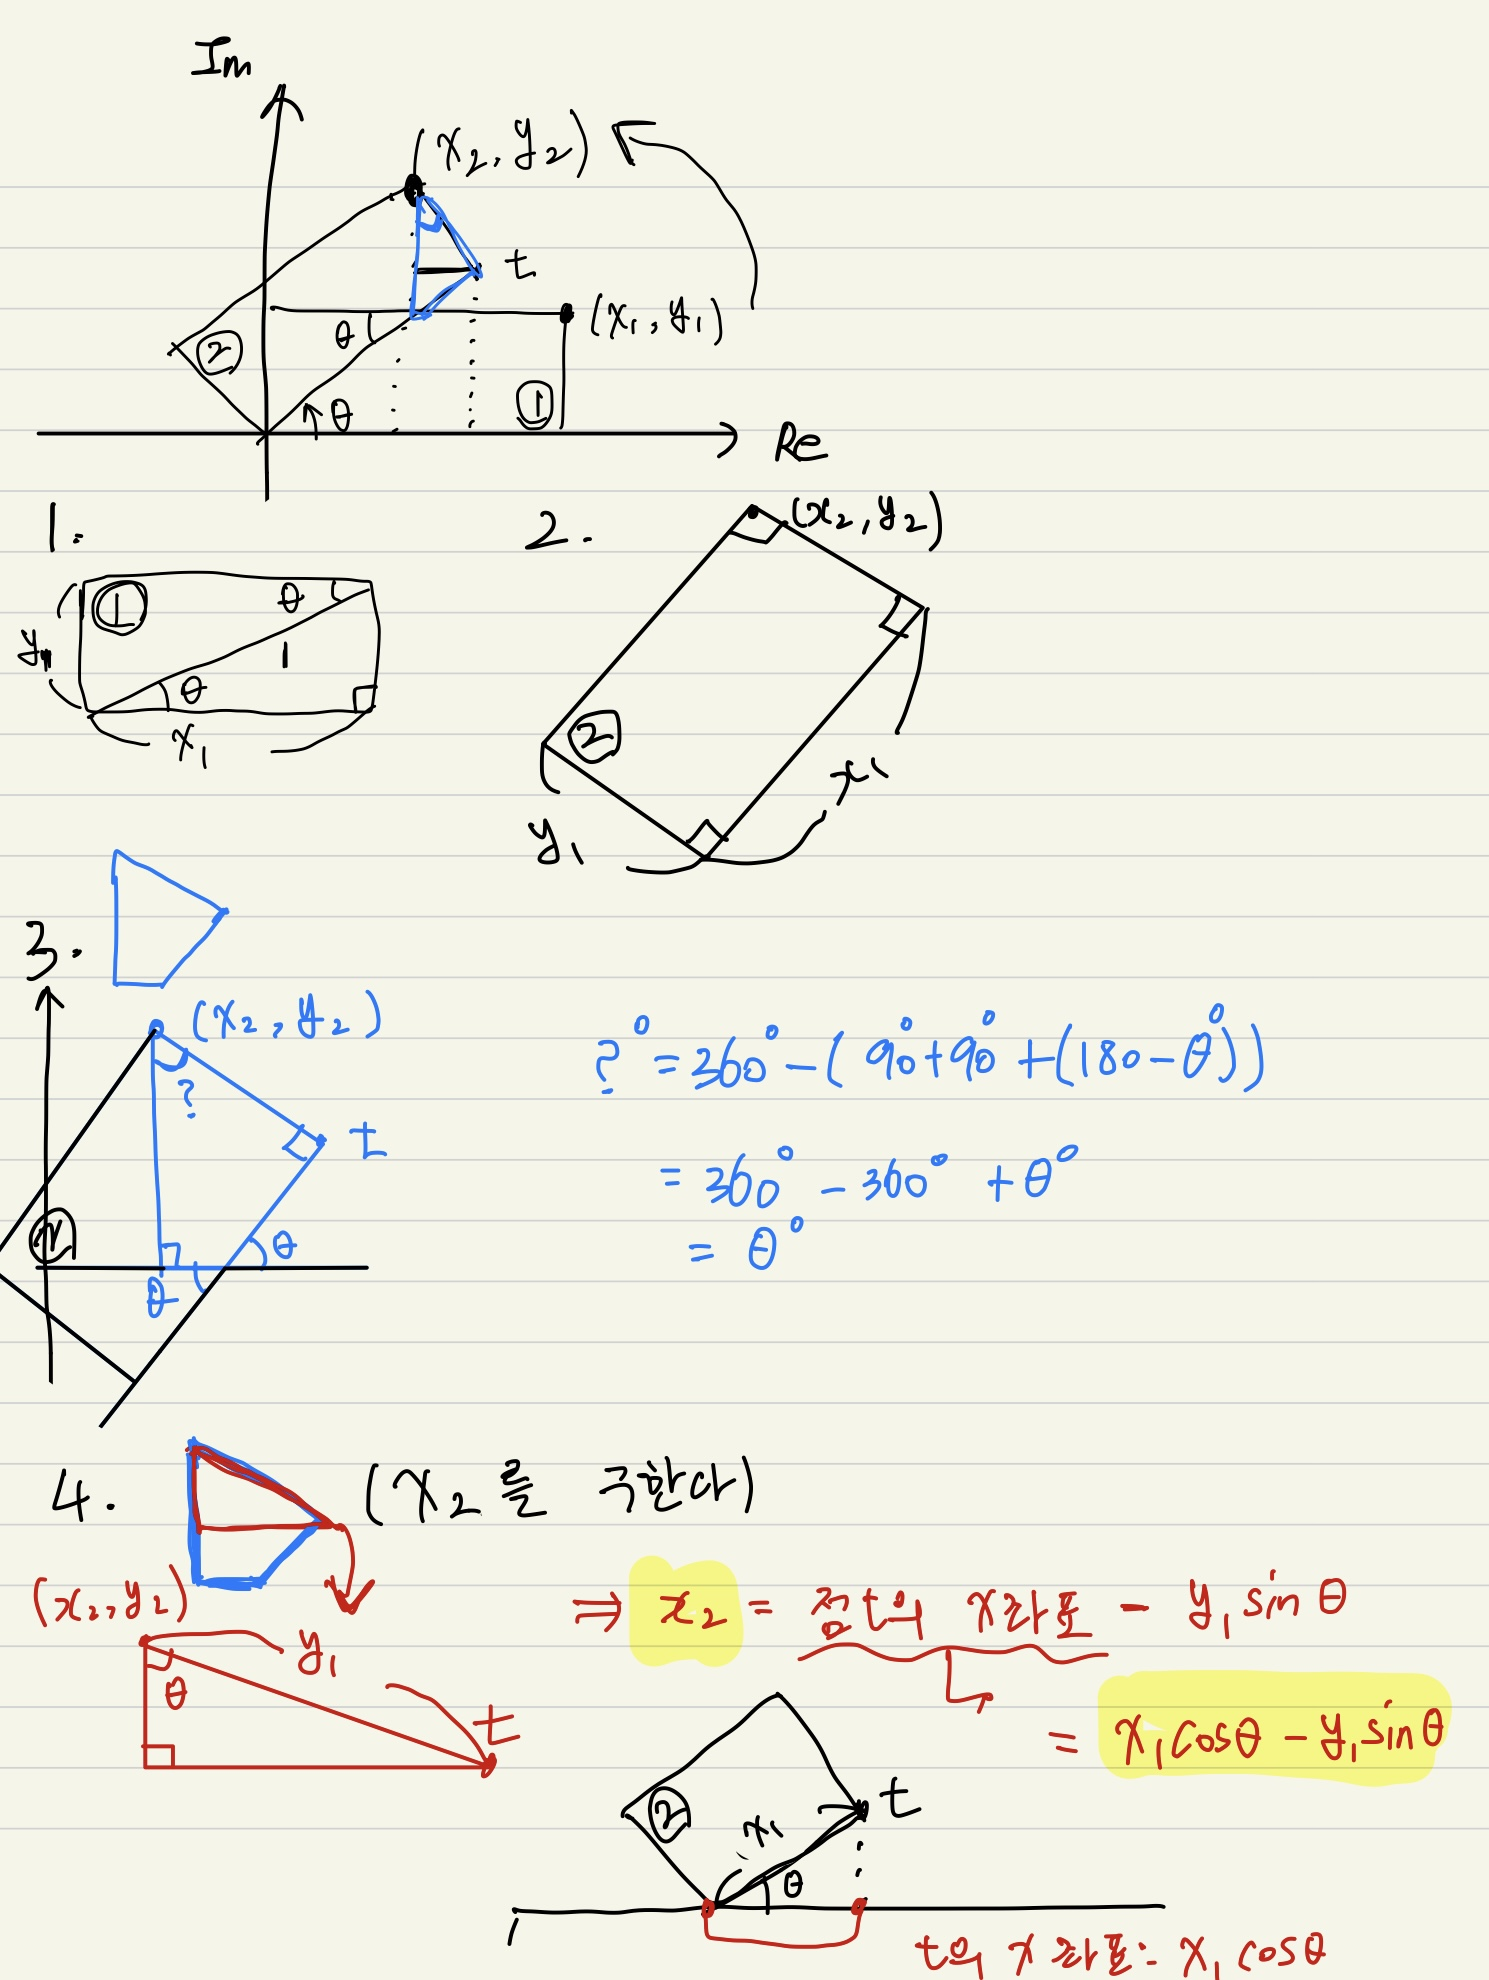 Im
(x₂, y₂)
t
(x₁, y₁)
θ
②
θ
①
Re
1.
①
θ
y₁
1
θ
x₁
2.
(x₂, y₂)
②
x₁
y₁
3.
(x₂, y₂)
?
t
θ
θ
?° = 360° - ( 90° + 90° + (180 - θ°))
= 360° - 360° + θ°
= θ°
4.
(x₂를 구한다)
(x₂, y₂)
y₁
θ
t
⇒ x₂ = 점t의 x좌표 - y₁ sin θ
= x₁ cosθ - y₁ sinθ
②
x₁
t
θ
t의 x좌표: x₁ cosθ